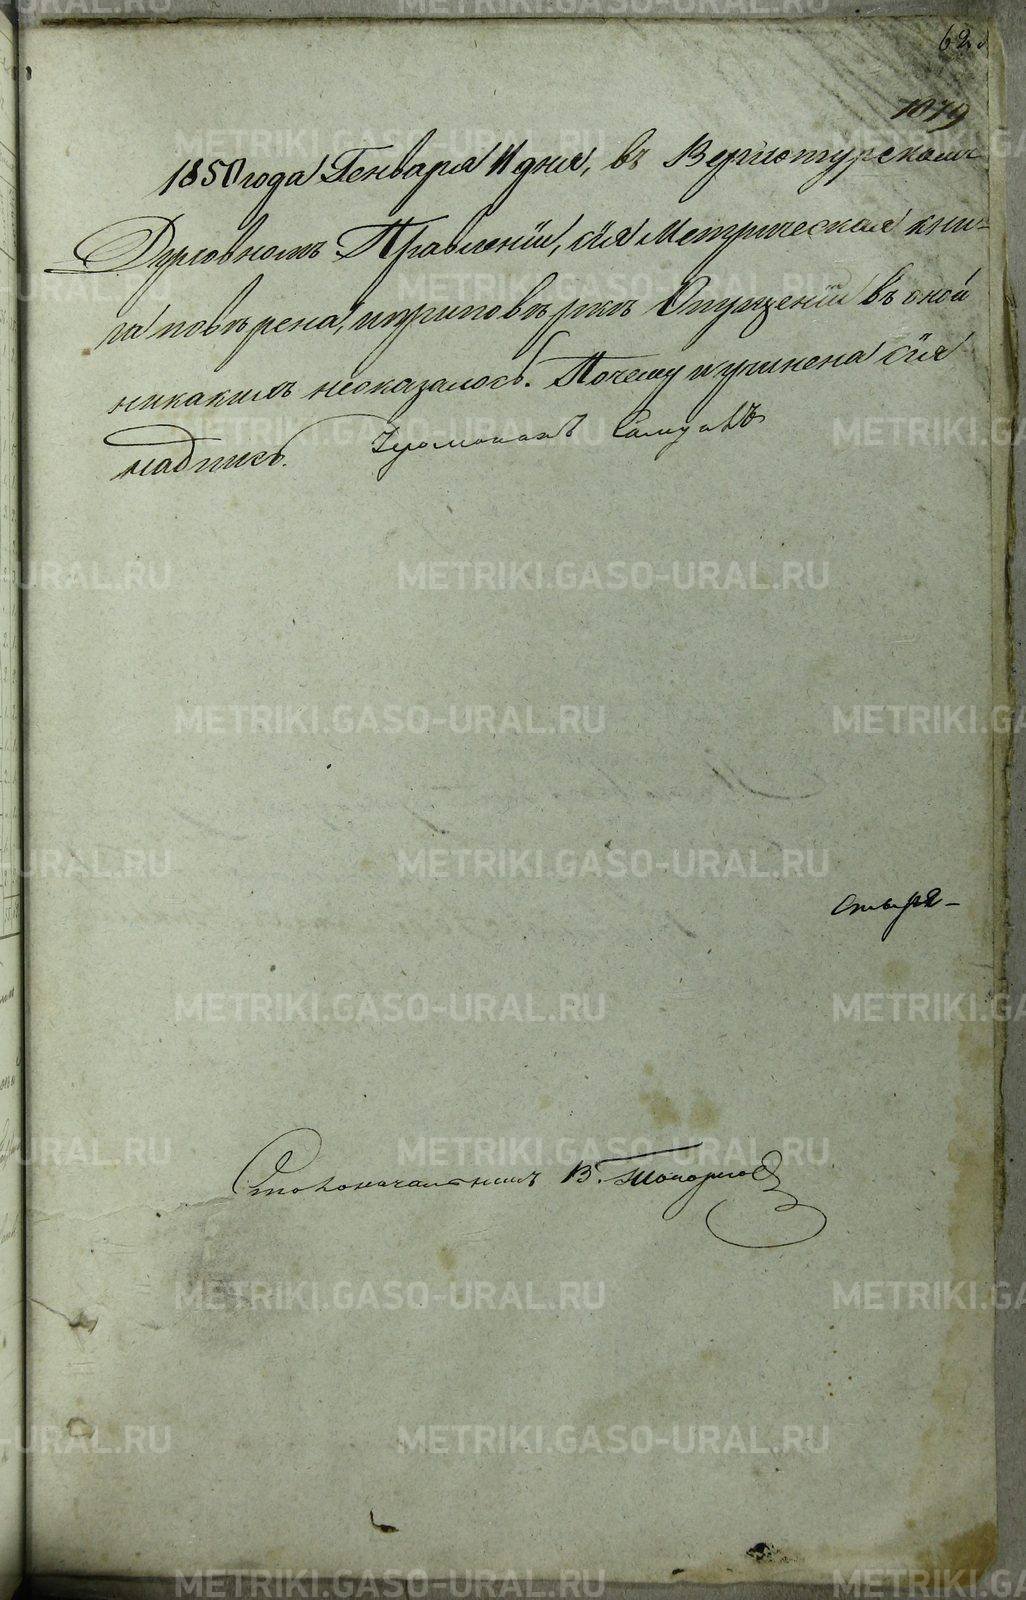 62
1079
1850 года Генваря 11 дня, въ Верхотурскомъ
Духовномъ Правленіи, сія Метрическая кни-
га повѣрена, и при повѣркѣ Опущеній въ оной
никакихъ неоказалось. Почему и учинена сія
надпись. Іеромонахъ Самуилъ
Столоначальникъ В. Топорков
METRIKI.GASO-URAL.RU